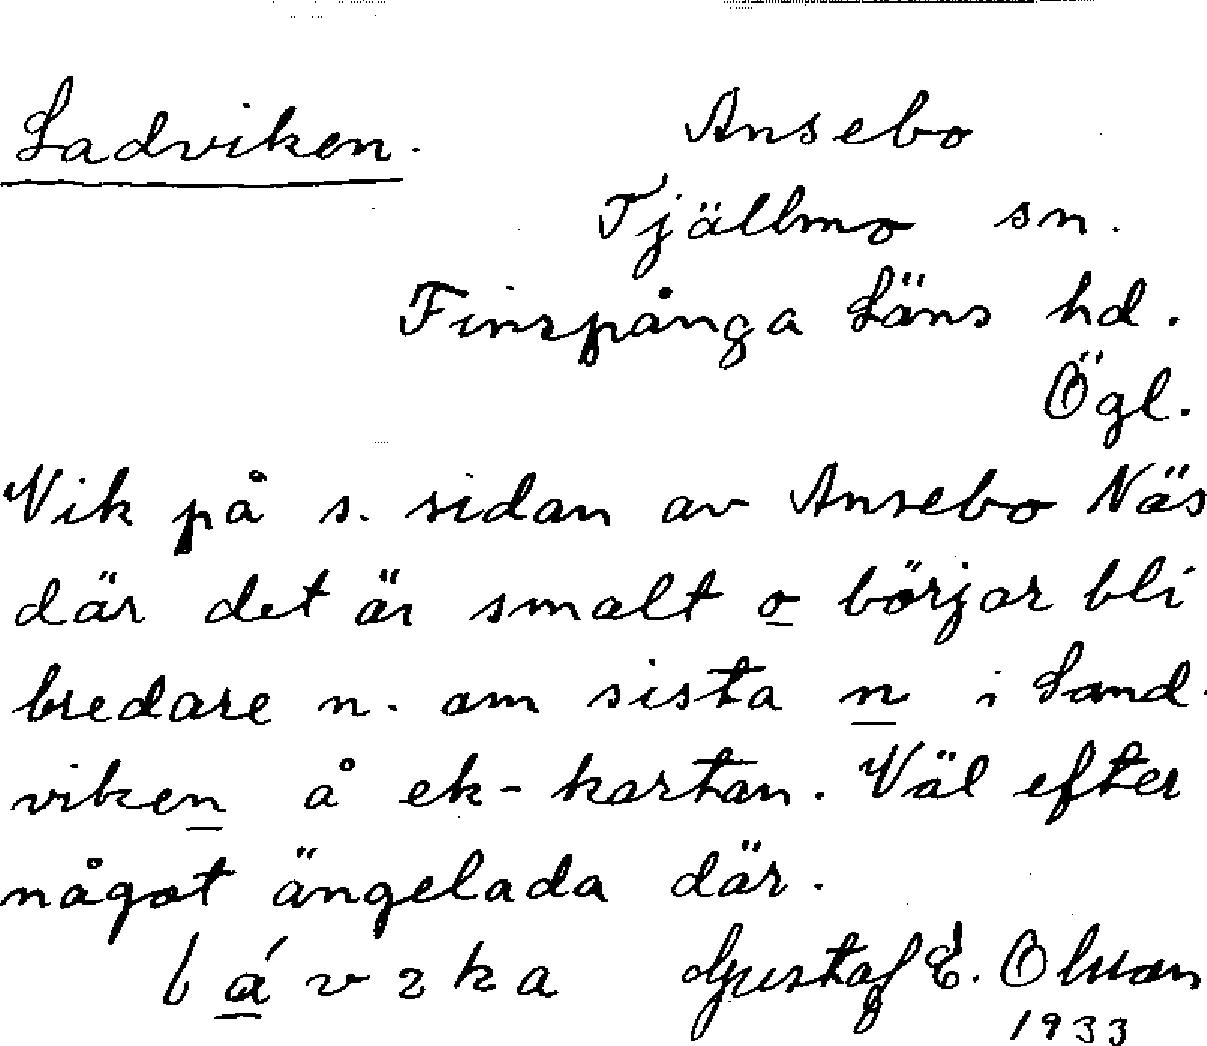 Ladviken.
Ansebo
Tjällmo sn.
Finspånga Läns hd.
Ögl.
Vik på s. sidan av Ansebo Näs
där det är smalt o börjar bli
bredare n. om sista n i Sand-
viken å ek-kartan. Väl efter
något ängelada där.
Gustaf E. Olsson
1933